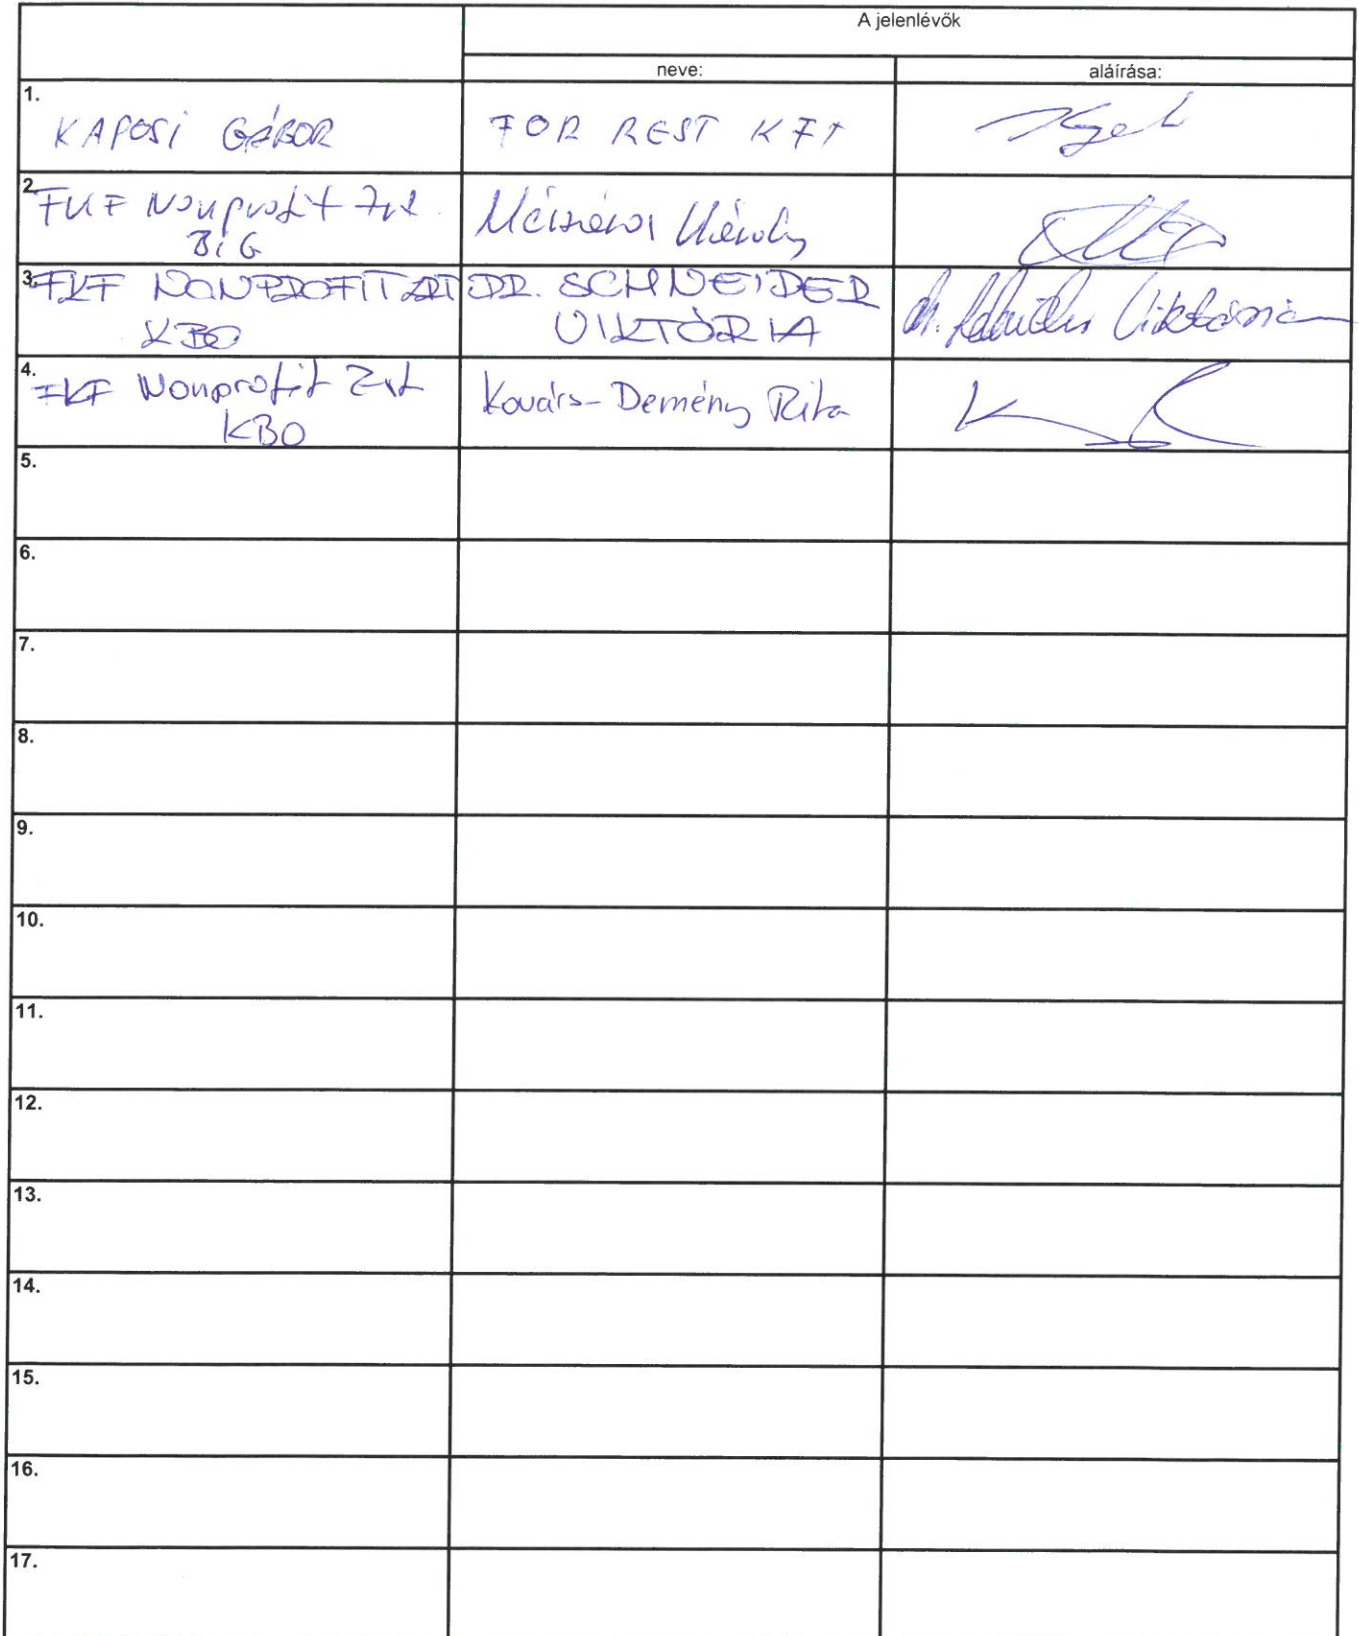 A jelenlévők
neve: aláírása:
1. KAPOSI GÁBOR FOR REST KFT
2. FKF Nonprofit Zrt. Mészáros Károly
BIG
3. FKF NONPROFIT ZRT DR. SCHNEIDER
KBO VIKTÓRIA dr. Schneider Viktória
4. FKF Nonprofit Zrt Kovács-Demény Rita
KBO
5.
6.
7.
8.
9.
10.
11.
12.
13.
14.
15.
16.
17.